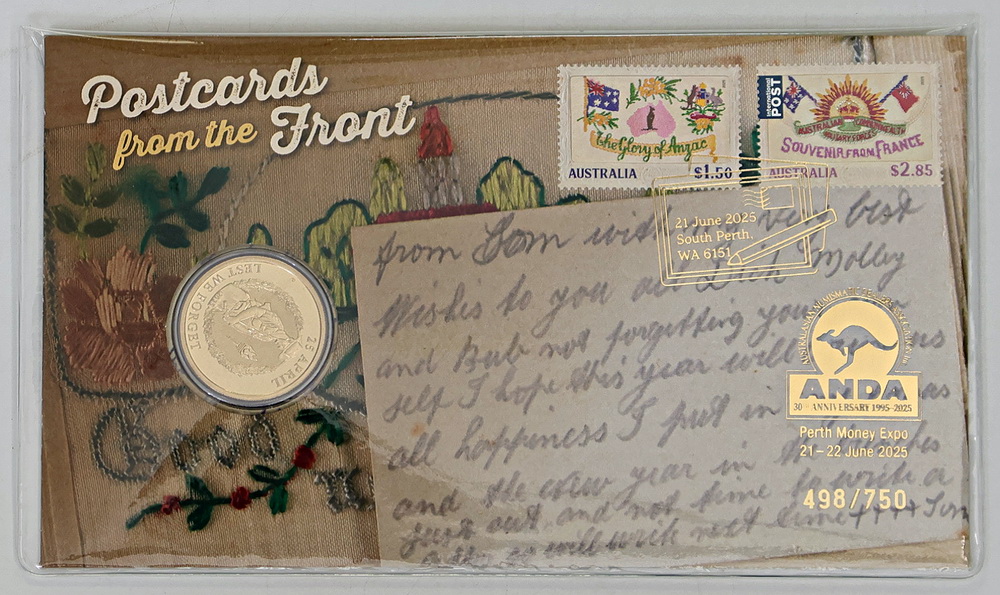 Postcards
from the Front
The Glory of Anzac
AUSTRALIA $1.50
International
POST
AUSTRALIAN COMMONWEALTH
MILITARY FORCES
SOUVENIR FROM FRANCE
AUSTRALIA $2.85
21 June 2025
South Perth,
WA 6151
LEST WE FORGET
25 APRIL
Good
from Tom with very best
Wishes to you and Dick Molley
and Bub not forgetting your
self I hope this year will
all happiness I put in
and the new year in the
just out and not time to write a
will write next time ++++ Tom
ANDA
30TH ANNIVERSARY 1995-2025
Perth Money Expo
21–22 June 2025
498/750